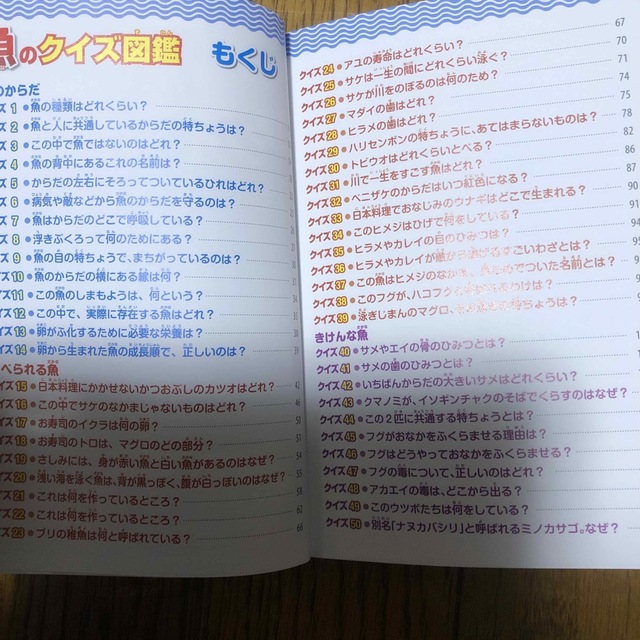 魚のクイズ図鑑 もくじ
のからだ
ズ1 ●魚の種類はどれくらい？
ズ2 ●魚と人に共通しているからだの特ちょうは？
ズ3 ●この中で魚ではないのはどれ？
ズ4 ●魚の背中にあるこれの名前は？
ズ5 ●からだの左右にそろってついているひれはどれ？
ズ6 ●病気や敵などから魚のからだを守るのは？
ズ7 ●魚はからだのどこで呼吸している？
ズ8 ●浮きぶくろって何のためにある？
ズ9 ●魚の目の特ちょうで、まちがっているのは？
ズ10 ●魚のからだの横にある線は何？
ズ11 ●この魚のしまもようは、何という？
ズ12 ●この中で、実際に存在する魚はどれ？
ズ13 ●卵がふ化するために必要な栄養は？
イズ14 ●卵から生まれた魚の成長順で、正しいのは？
べられる魚
イズ15 ●日本料理にかかせないかつおぶしのカツオはどれ？ 42
イズ16 ●この中でサケのなかまじゃないものはどれ？ 46
イズ17 ●お寿司のイクラは何の卵？ 39
イズ18 ●お寿司のトロは、マグロのどの部分？ 50
イズ19 ●さしみには、身が赤い魚と白い魚があるのはなぜ？ 54
イズ20 ●浅い海を泳ぐ魚は、背が黒っぽく、腹が白っぽいのはなぜ？ 55
イズ21 ●これは何を作っているところ？ 58
イズ22 ●これは何を作っているところ？ 62
イズ23 ●ブリの稚魚は何と呼ばれている？ 66
クイズ24 ●アユの寿命はどれくらい？ 67
クイズ25 ●サケは一生の間にどれくらい泳ぐ？ 70
クイズ26 ●サケが川をのぼるのは何のため？ 71
クイズ27 ●マダイの歯はどれ？ 74
クイズ28 ●ヒラメの歯はどれ？ 75
クイズ29 ●ハリセンボンの特ちょうに、あてはまらないものは？ 78
クイズ30 ●トビウオはどれくらいとべる？ 82
クイズ31 ●川で一生をすごす魚はどれ？ 86
クイズ32 ●ベニザケのからだはいつ紅色になる？ 87
クイズ33 ●日本料理でおなじみのウナギはどこで生まれる？ 90
クイズ34 ●このヒメジはひげで何をしている？ 91
クイズ35 ●ヒラメやカレイの目のひみつは？
クイズ36 ●ヒラメやカレイが敵から逃げるすごいわざとは？
クイズ37 ●この魚はヒメジのなかま。ついた名前とは？
クイズ38 ●このフグが、ハコフグわけは？
クイズ39 ●泳ぎじまんのマグロ、特ちょうは？
きけんな魚
クイズ40 ●サメやエイの骨のひみつとは？
クイズ41 ●サメの歯のひみつとは？
クイズ42 ●いちばんからだの大きいサメはどれくらい？
クイズ43 ●クマノミが、イソギンチャクのそばでくらすのはなぜ？
クイズ44 ●この2匹に共通する特ちょうとは？
クイズ45 ●フグがおなかをふくらませる理由は？
クイズ46 ●フグはどうやっておなかをふくらませる？
クイズ47 ●フグの毒について、正しいのはどれ？
クイズ48 ●アカエイの毒は、どこから出る？
クイズ49 ●このウツボたちは何をしている？
クイズ50 ●別名「ナヌカバシリ」と呼ばれるミノカサゴ。なぜ？